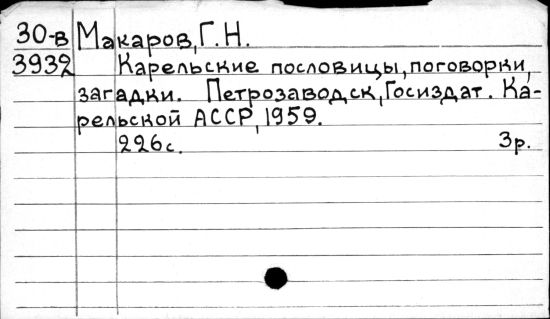 30-в Макаров, Г.Н.
3932 Карельские пословицы, поговорки,
загадки. Петрозаводск, Госиздат. Ка-
рельской АССР, 1959.
226с. 3р.